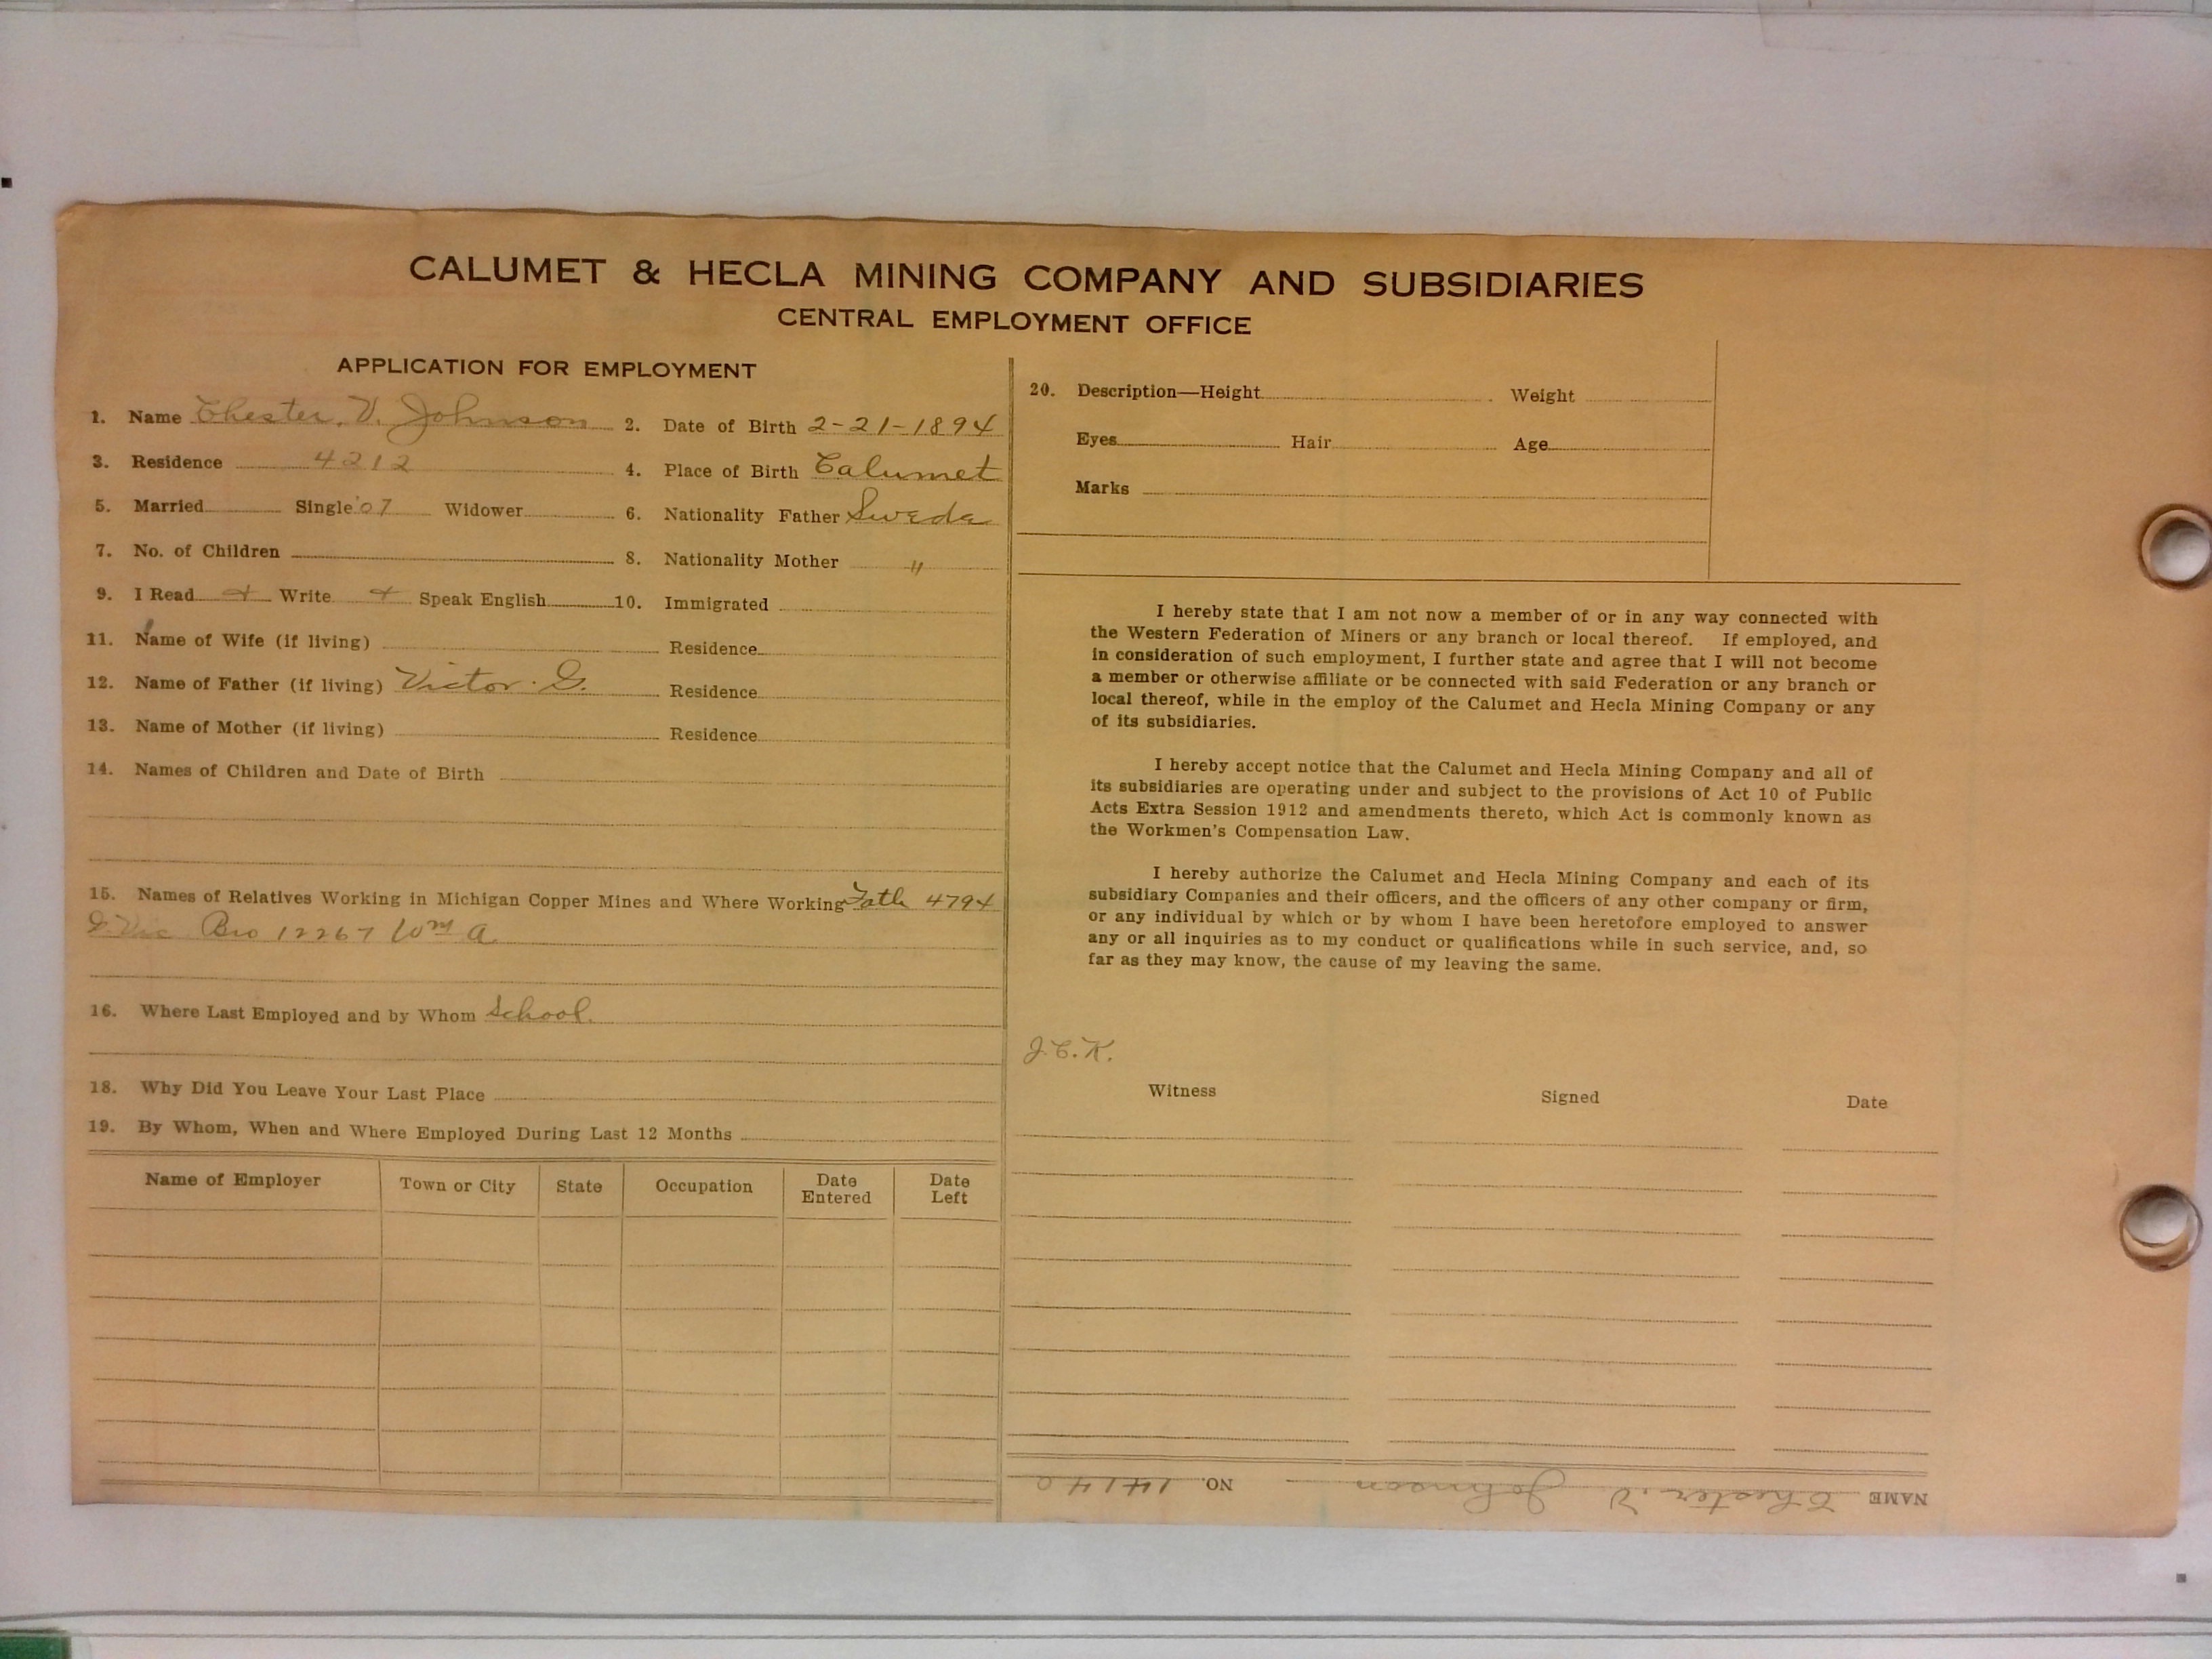 CALUMET & HECLA MINING COMPANY AND SUBSIDIARIES
CENTRAL EMPLOYMENT OFFICE
APPLICATION FOR EMPLOYMENT
1. Name Chester. V. Johnson 2. Date of Birth 2-21-1894
3. Residence 4212 4. Place of Birth Calumet
5. Married Single '07 Widower 6. Nationality Father Swede
7. No. of Children 8. Nationality Mother "
9. I Read + Write + Speak English 10. Immigrated
11. Name of Wife (if living) Residence
12. Name of Father (if living) Victor. G. Residence
13. Name of Mother (if living) Residence
14. Names of Children and Date of Birth
15. Names of Relatives Working in Michigan Copper Mines and Where Working Fath 4794
G Vic Bro 12267 Wm A
16. Where Last Employed and by Whom School.
18. Why Did You Leave Your Last Place
19. By Whom, When and Where Employed During Last 12 Months
Name of Employer Town or City State Occupation Date Entered Date Left
20. Description—Height Weight
Eyes Hair Age
Marks
I hereby state that I am not now a member of or in any way connected with
the Western Federation of Miners or any branch or local thereof. If employed, and
in consideration of such employment, I further state and agree that I will not become
a member or otherwise affiliate or be connected with said Federation or any branch or
local thereof, while in the employ of the Calumet and Hecla Mining Company or any
of its subsidiaries.
I hereby accept notice that the Calumet and Hecla Mining Company and all of
its subsidiaries are operating under and subject to the provisions of Act 10 of Public
Acts Extra Session 1912 and amendments thereto, which Act is commonly known as
the Workmen's Compensation Law.
I hereby authorize the Calumet and Hecla Mining Company and each of its
subsidiary Companies and their officers, and the officers of any other company or firm,
or any individual by which or by whom I have been heretofore employed to answer
any or all inquiries as to my conduct or qualifications while in such service, and, so
far as they may know, the cause of my leaving the same.
J.C.K.
Witness Signed Date
NAME Chester. V Johnson NO. 14140